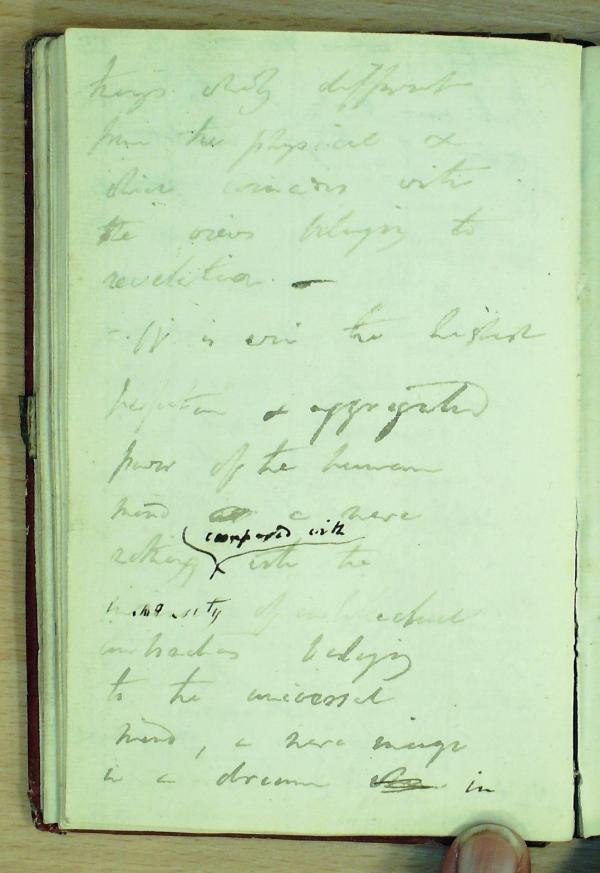 things wholly different
from the physical &
which coincides with
the views belonging to
revelation. —
- It is in the highest
perfection & aggregated
power of the human
mind a mere
compared with
nothing with the
immensity of intellectual
belonging
to the universal
mind, a mere image
in a dream in